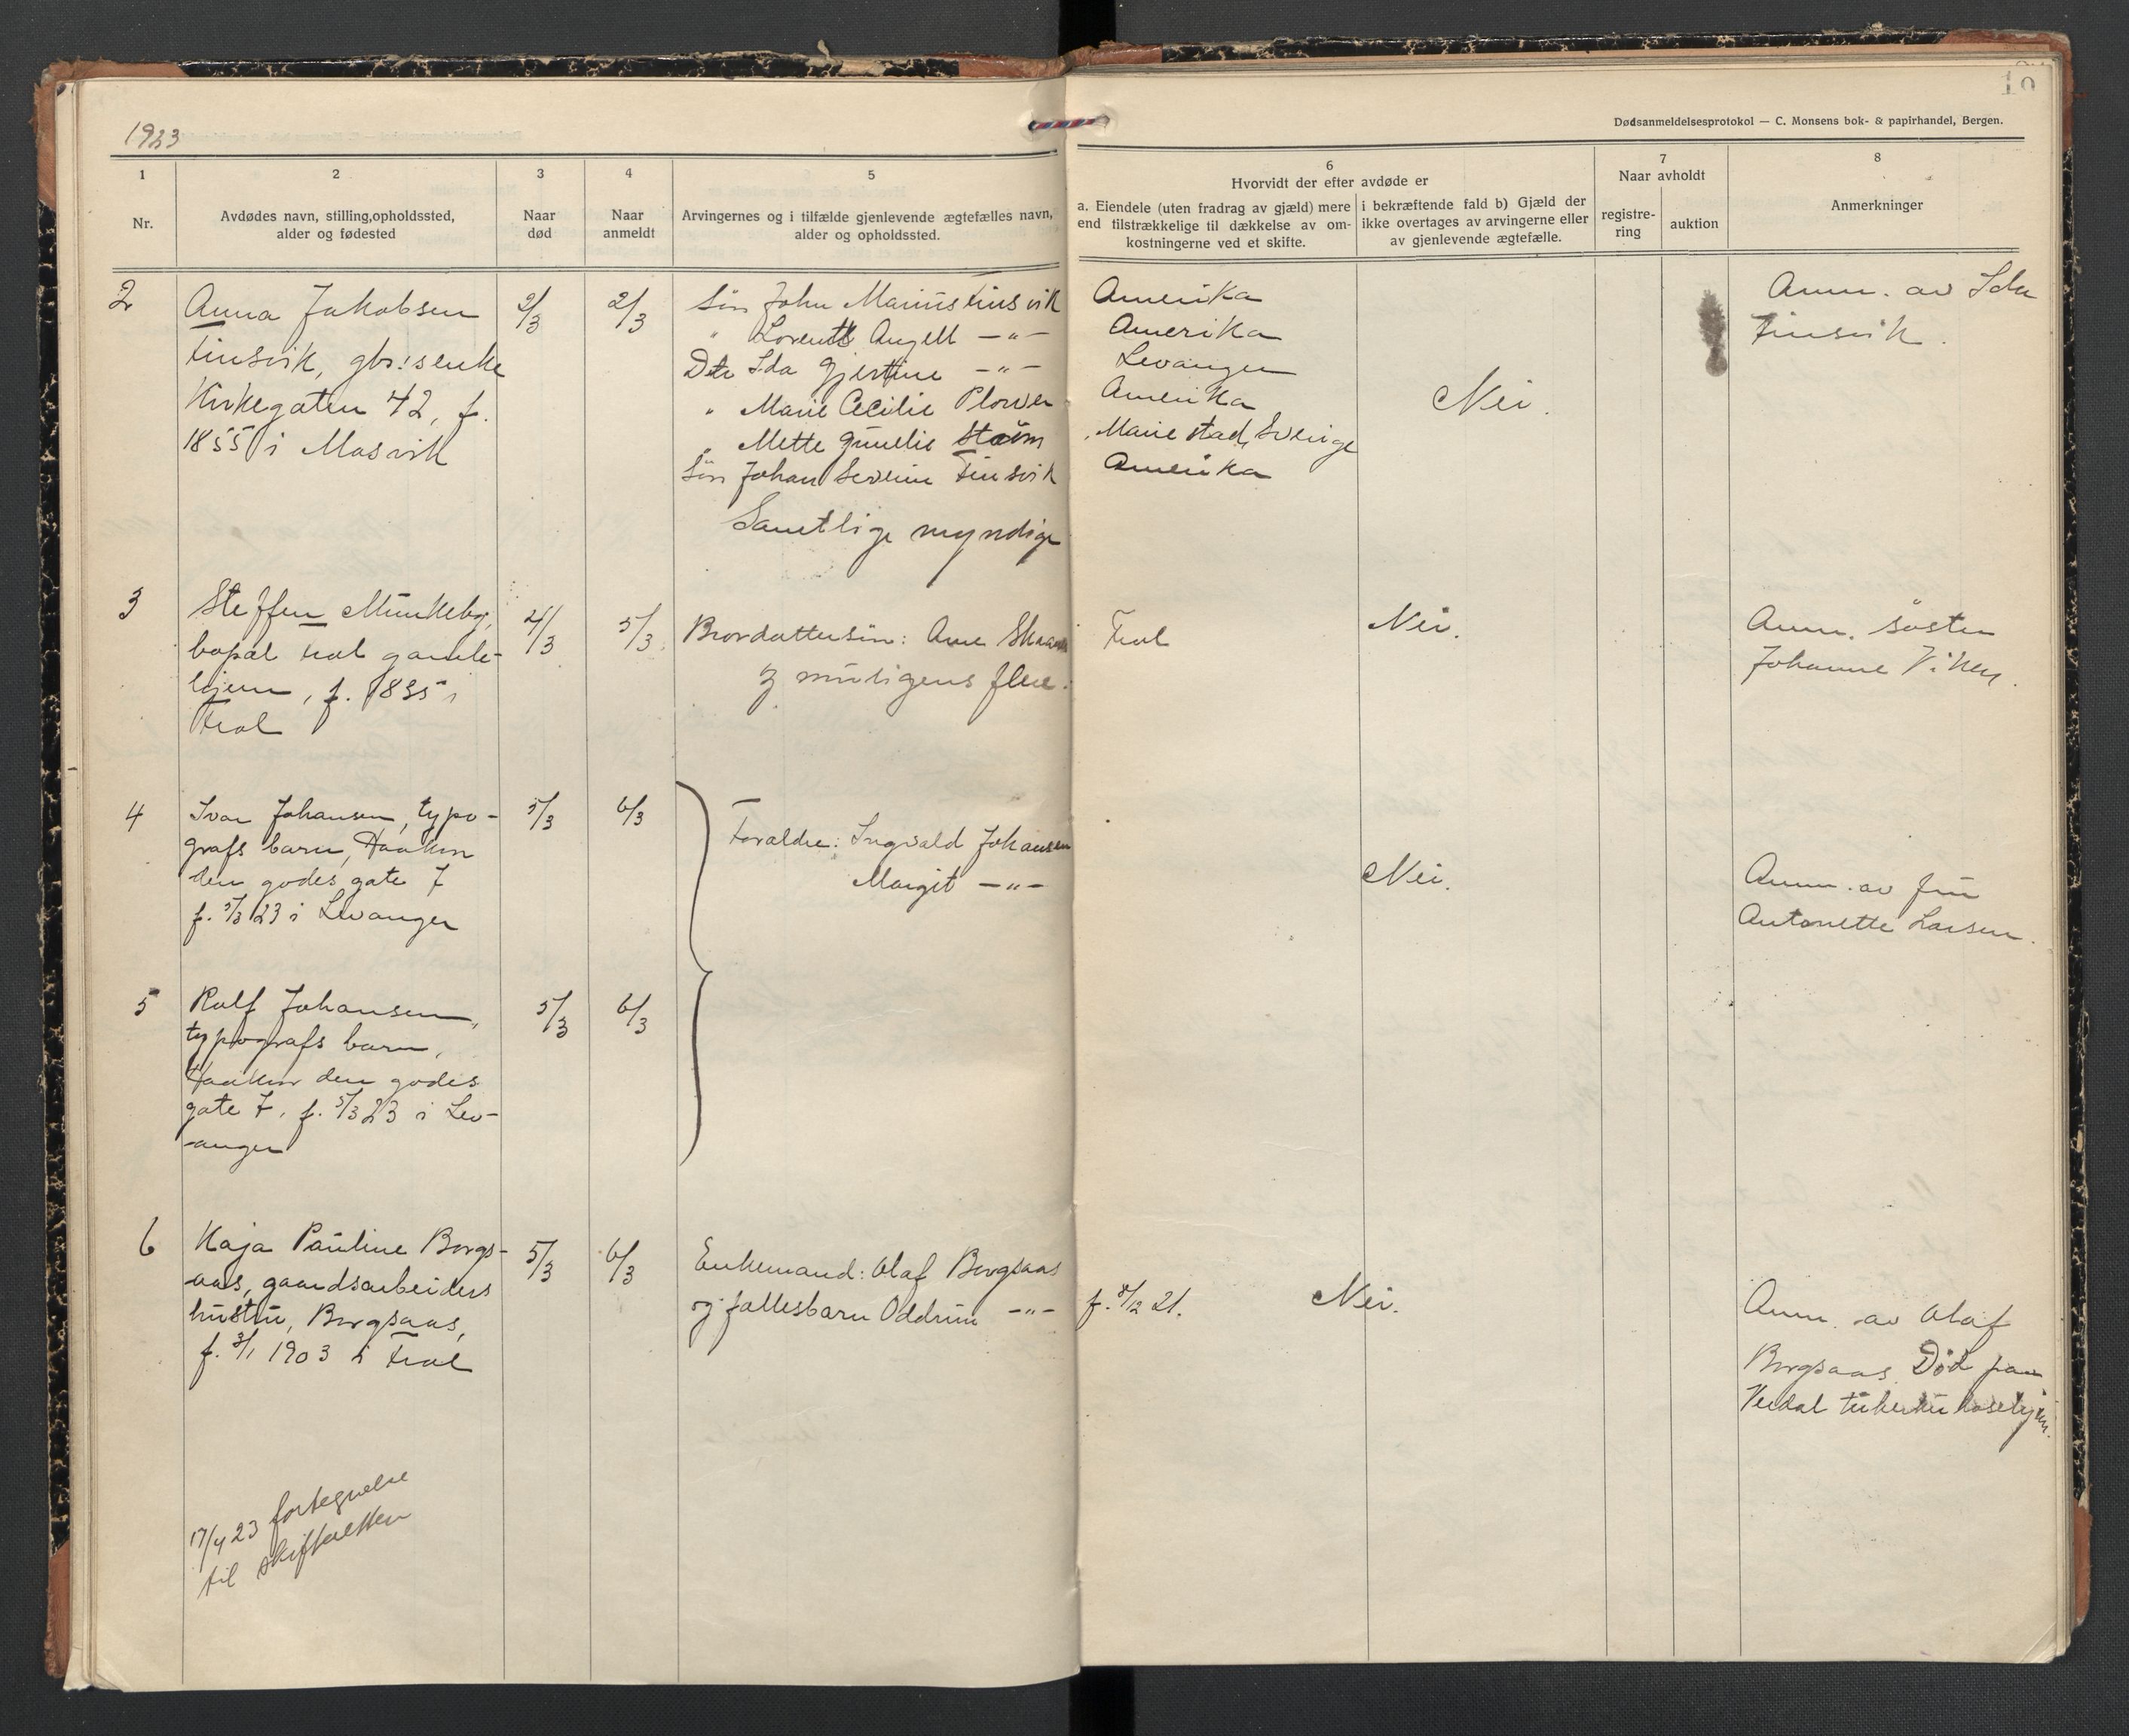 1923
19
Dødsanmeldelsesprotokol — C. Monsens bok- & papirhandel, Bergen.
1
Nr.
2
Avdødes navn, stilling, opholdssted,
alder og fødested
3
Naar
død
4
Naar
anmeldt
5
Arvingernes og i tilfælde gjenlevende ægtefælles navn,
alder og opholdssted.
6
Hvorvidt der efter avdøde er
a. Eiendele (uten fradrag av gjæld) mere
end tilstrækkelige til dækkelse av om-
kostningerne ved et skifte.
i bekræftende fald b) Gjæld der
ikke overtages av arvingerne eller
av gjenlevende ægtefælle.
7
Naar avholdt
registre-
ring
auktion
8
Anmerkninger
2
Anna Jakobsen
Finsvik, gbr:s enke
Kirkegaten 42, f.
1855 i Mosvik
2/3
2/3
Søn John Marius Finsvik
" Lorents Angell —"—
Dtr Ida Gjertine —"—
" Marie Cecilie
" Mette Storm
Søn Johan Severin Finsvik
Samtlige myndige
Amerika
Amerika
Levanger
Amerika
Marie stad, Sverige
Amerika
Nei.
Anm. av Ida
Finsvik.
3
Steffen Munkeby,
bopæl Frol gamle-
hjem, f. 1835 i
Frol
4/3
5/3
Brordattersøn: Arne
og muligens flere.
Frol
Nei.
Anm. søster
Johanne Viken.
4
Ivar Johansen, typo-
grafs barn, Haakon
den godes gate 7
f. 5/3 23 i Levanger
5/3
6/3
Forældre: Ingvald Johansen
Margit —"—
Nei.
Anm. av fru
Antonette Larsen.
5
Rolf Johansen,
typografs barn,
Haakon den godes
gate 7, f. 5/3 23 i Lev-
anger
5/3
6/3
6
Kaja Pauline Borgs-
aas, gaardsarbeiders
hustru, Borgsaas,
f. 3/1 1903 i Frol
5/3
6/3
Enkemand: Olaf Borgsaas
og fællesbarn Oddrun —"—
f. 8/12 21.
Nei.
Anm. av Olaf
Borgsaas. Død paa
Verdal tuberkulosehjem.
17/4 23 fortegnelse
til skifteretten